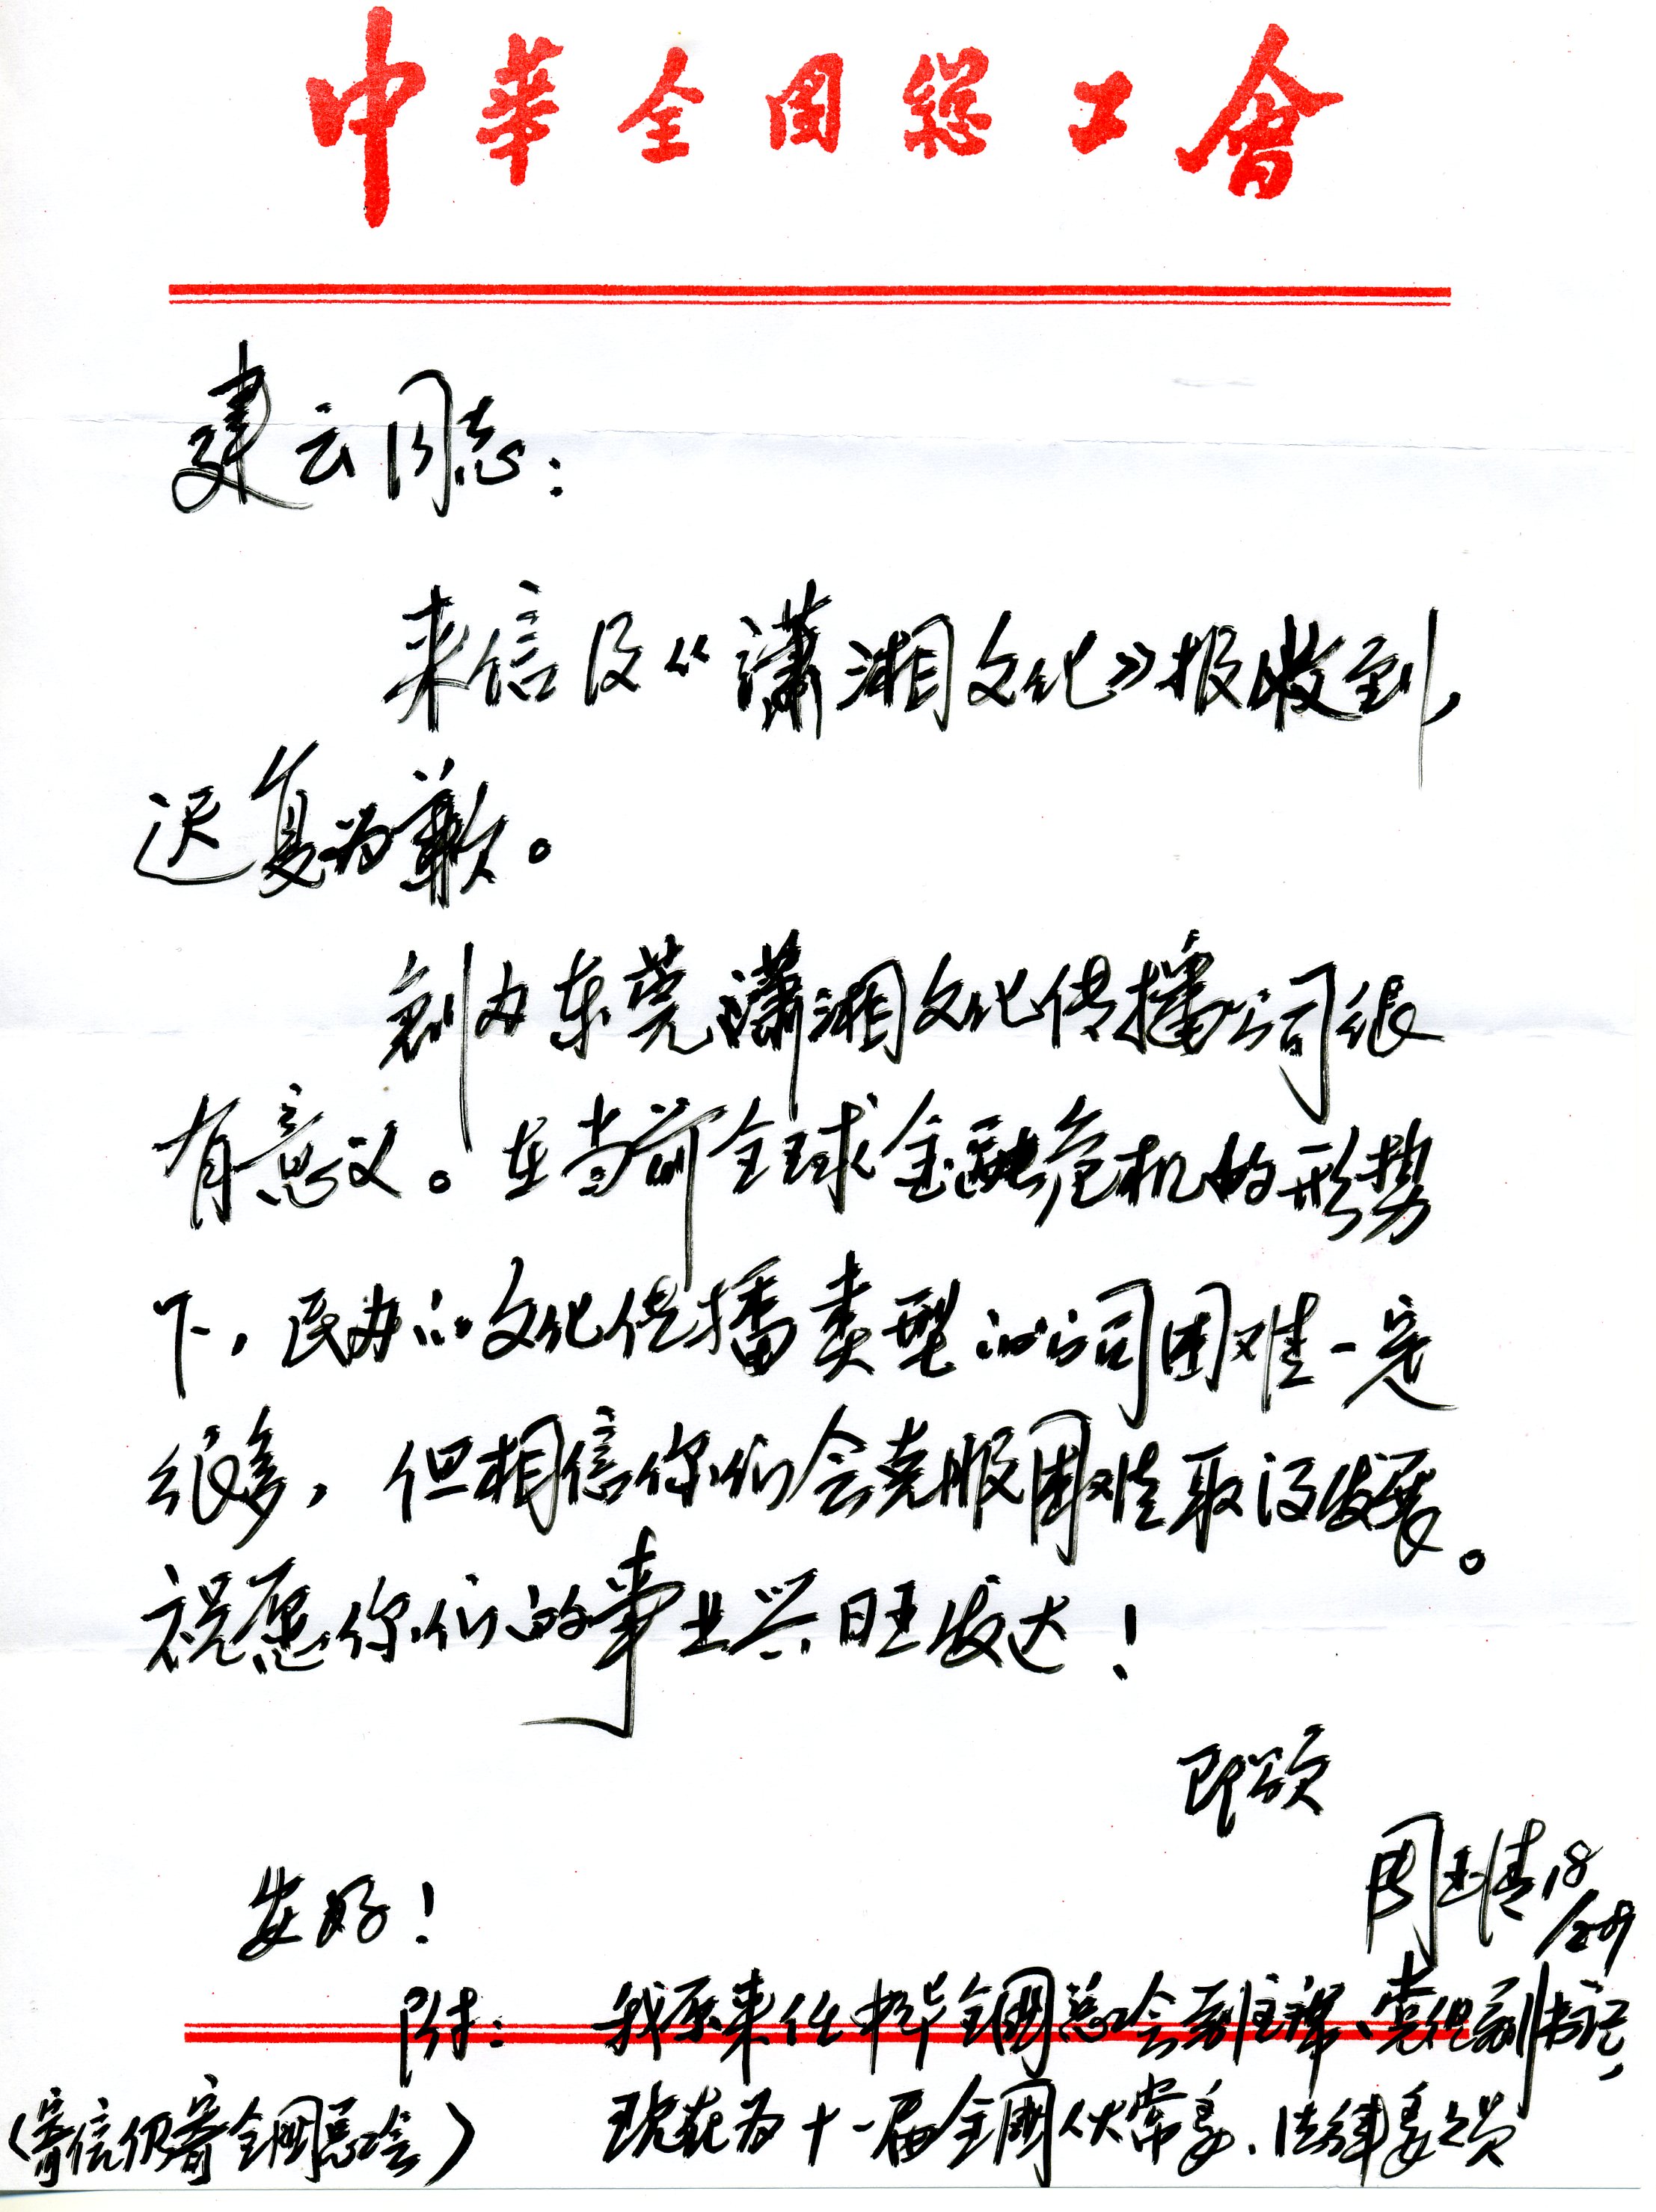 中華全国總工會
建云同志：
来信及《潇湘文化》报收到，
迟复为歉。
创办东莞潇湘文化传播公司很
有意义。在当前全球金融危机的形势
下，民办的文化传播类型的公司困难一定
很多，但相信你们会克服困难取得发展。
祝愿你们的事业兴旺发达！
即颂
安好！
周玉清 18/2 09
附：我原来任中华全国总工会副主席、党组副书记，
现在为十一届全国人大常委、法律委委员
（寄信仍寄全国总工会）